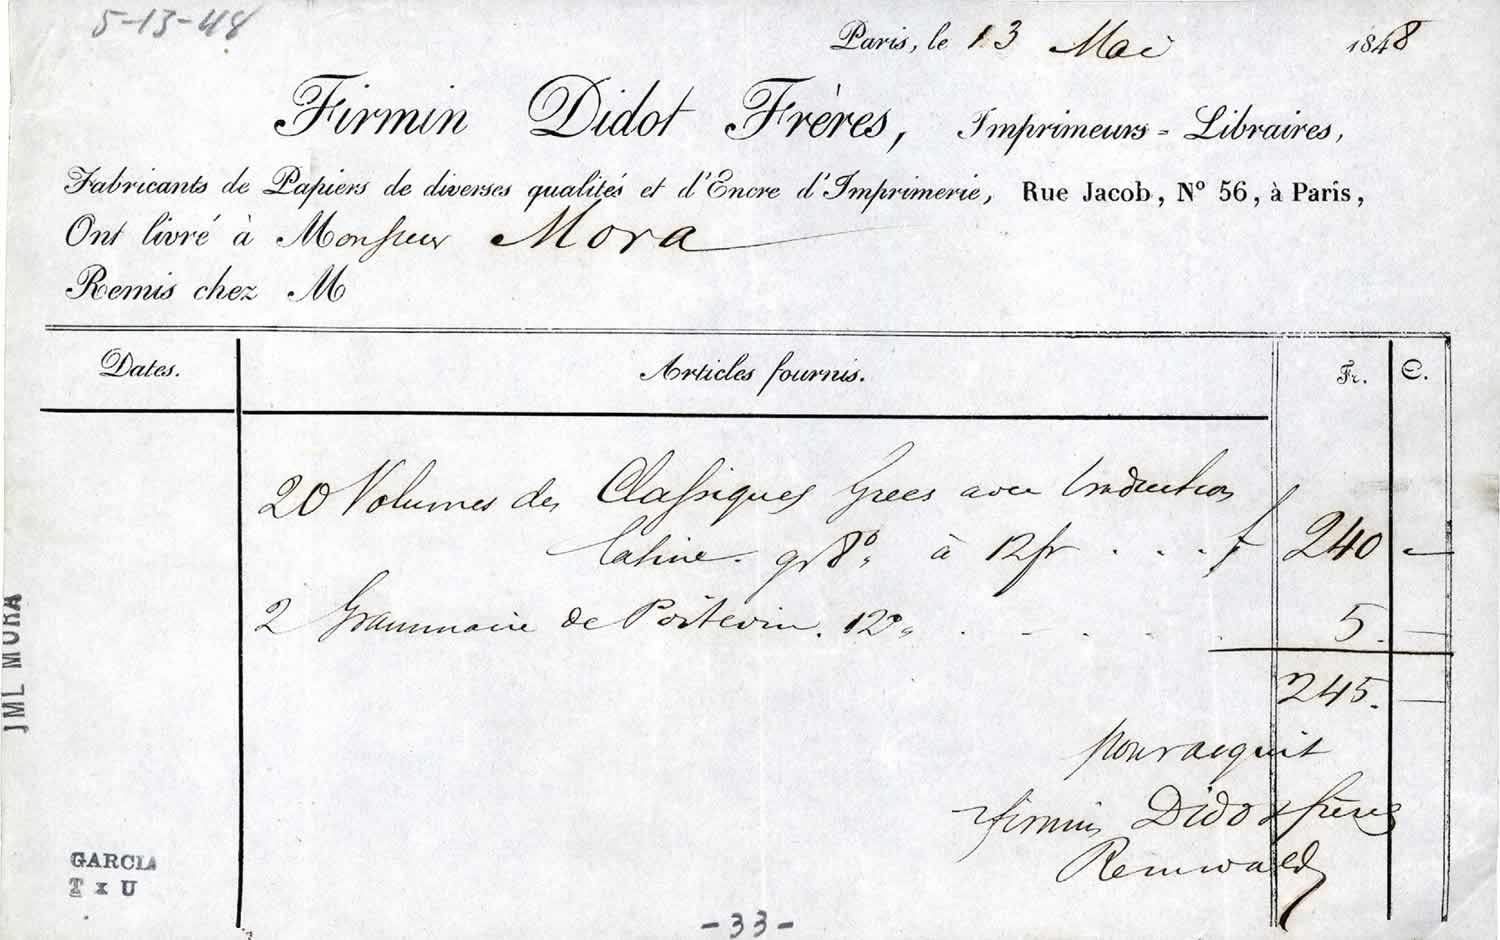 5-13-48
Paris, le 13 Mai 1848
Firmin Didot Frères, Imprimeurs-Libraires,
Fabricants de Papiers de diverses qualités et d'Encre d'Imprimerie, Rue Jacob, N° 56, à Paris,
Ont livré à Monsieur Mora
Remis chez M
Dates. Articles fournis. Fr. C.
20 Volumes des Classiques Grecs avec traduction
latine. gr 8°. à 12 fr . . . f 240 -
2 Grammaire de Poitevin. 12°. . - . . . 5. -
245. -
pour acquit
Firmin Didot frères
Reinwald
JML MORA
GARCIA
T x U
-33-